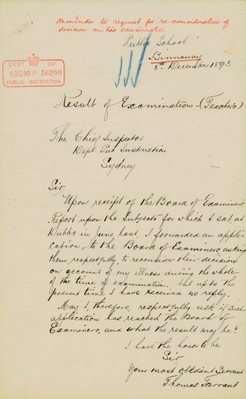 Reminder to request for re-consideration of
decision on his examination
Public School
Binnaway
2nd December 1893
DEPT OF
PUBLIC INSTRUCTION
Result of Examination (Teacher's)
The Chief Inspector
Dept. Pub. Instruction
Sydney
Sir
Upon receipt of the Board of Examiners'
Report upon the Subjects for which I sat at
Dubbo in June last, I forwarded an appli-
cation, to the Board of Examiners, asking
them, respectfully, to reconsider their decisions
on account of my illness during the whole
of the time of examination, but up to the
present time I have received no reply.
May I therefore, respectfully ask if said
application has reached the Board of
Examiners, and what the result may be?
I have the honor to be
Sir
Your most obedient Servant
Thomas Farrant